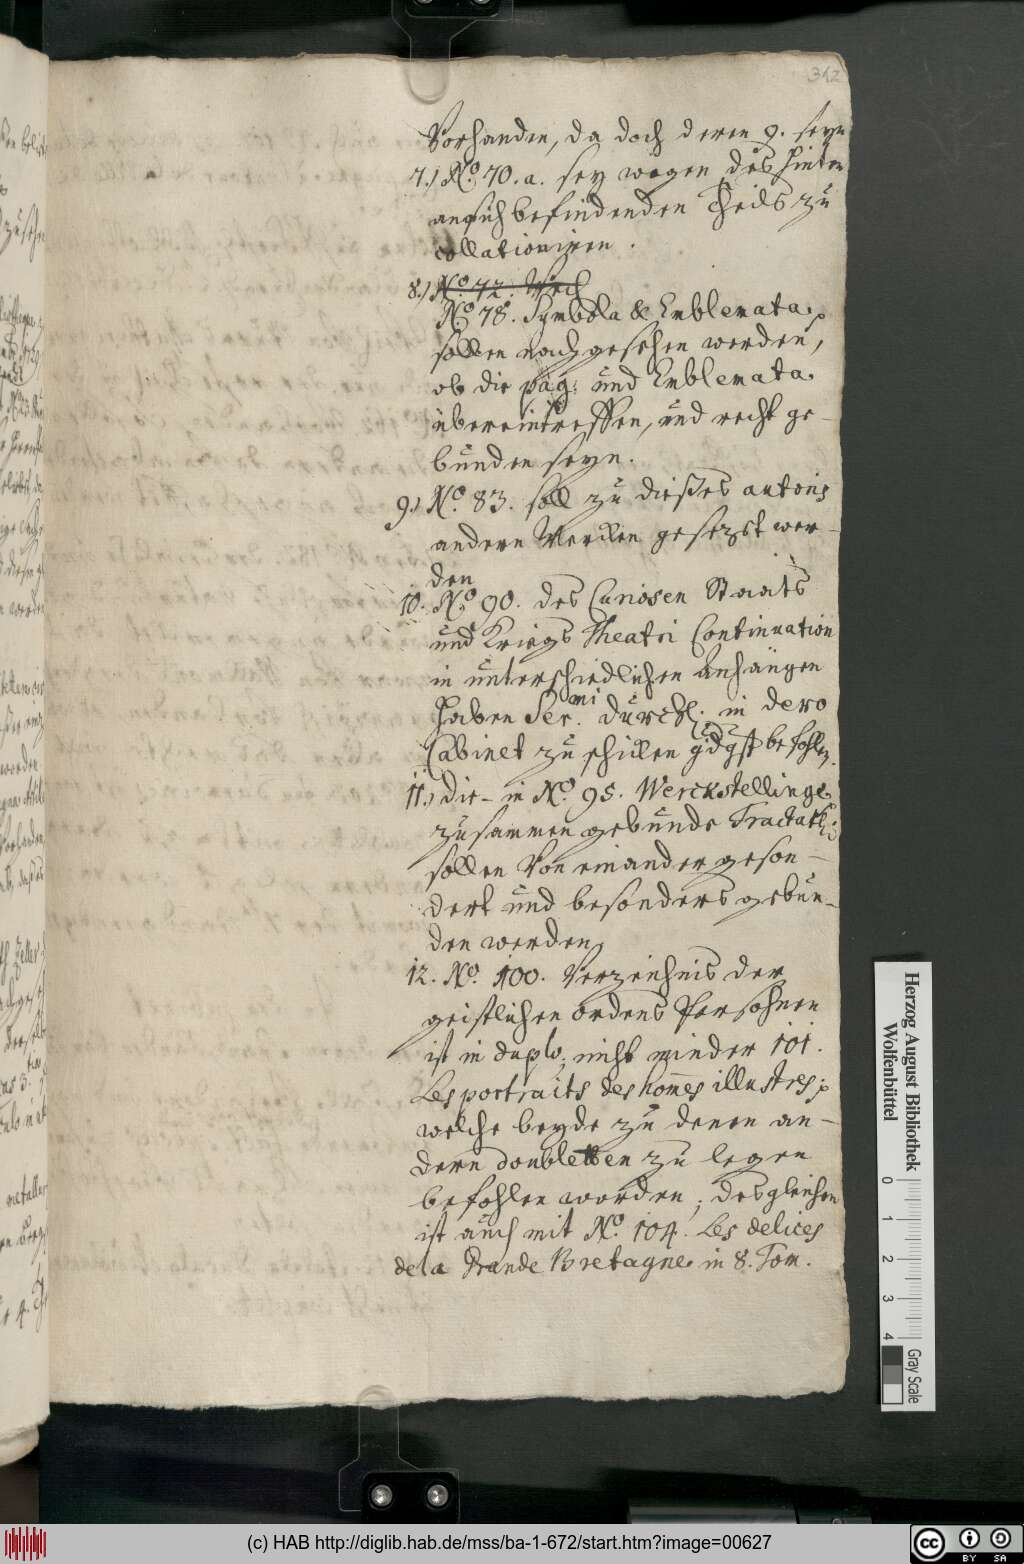 342
Vorhanden, da doch deren 9. seyn
7.) No. 70. a. sey wegen des hinten
ansich befindenden Theils zu
collationiren.
8.) No. 72. Nach
No. 78. Symbola & Emblemata
sollen nachgesehen werden,
ob die pag: und Emblemata
übereintreffen, und recht ge-
bunden seyn.
9.) No. 83. soll zu dießes autoris
andern Wercken gesezt wer-
den
10. No. 90. des Curiosen Staats
und Kriegs Theatri Continuation
in unterschiedlichen Anhängen
haben Ser.mi Durchl: in dero
Cabinet zu schicken gdgst befohlen.
11.) die in No. 95. Werckstellinge
zusammen gebunde Tractatl:
sollen Von einander geson-
dert und besonders gebun-
den werden,
12. No. 100. Verzeichnis der
geistlichen ordens Persohnen
ist in duplo, nicht minder 101.
Les portraits des hom̄es illustres,
welche beyde zu denen an-
dern doubletten zu legen
befohlen worden, desgleichen
ist auch mit No. 104. Les delices
de la Grande Bretagne in 8. Tom.
Herzog August Bibliothek
Wolfenbüttel
0 1 2 3 4
Gray Scale
(c) HAB http://diglib.hab.de/mss/ba-1-672/start.htm?image=00627
cc BY SA